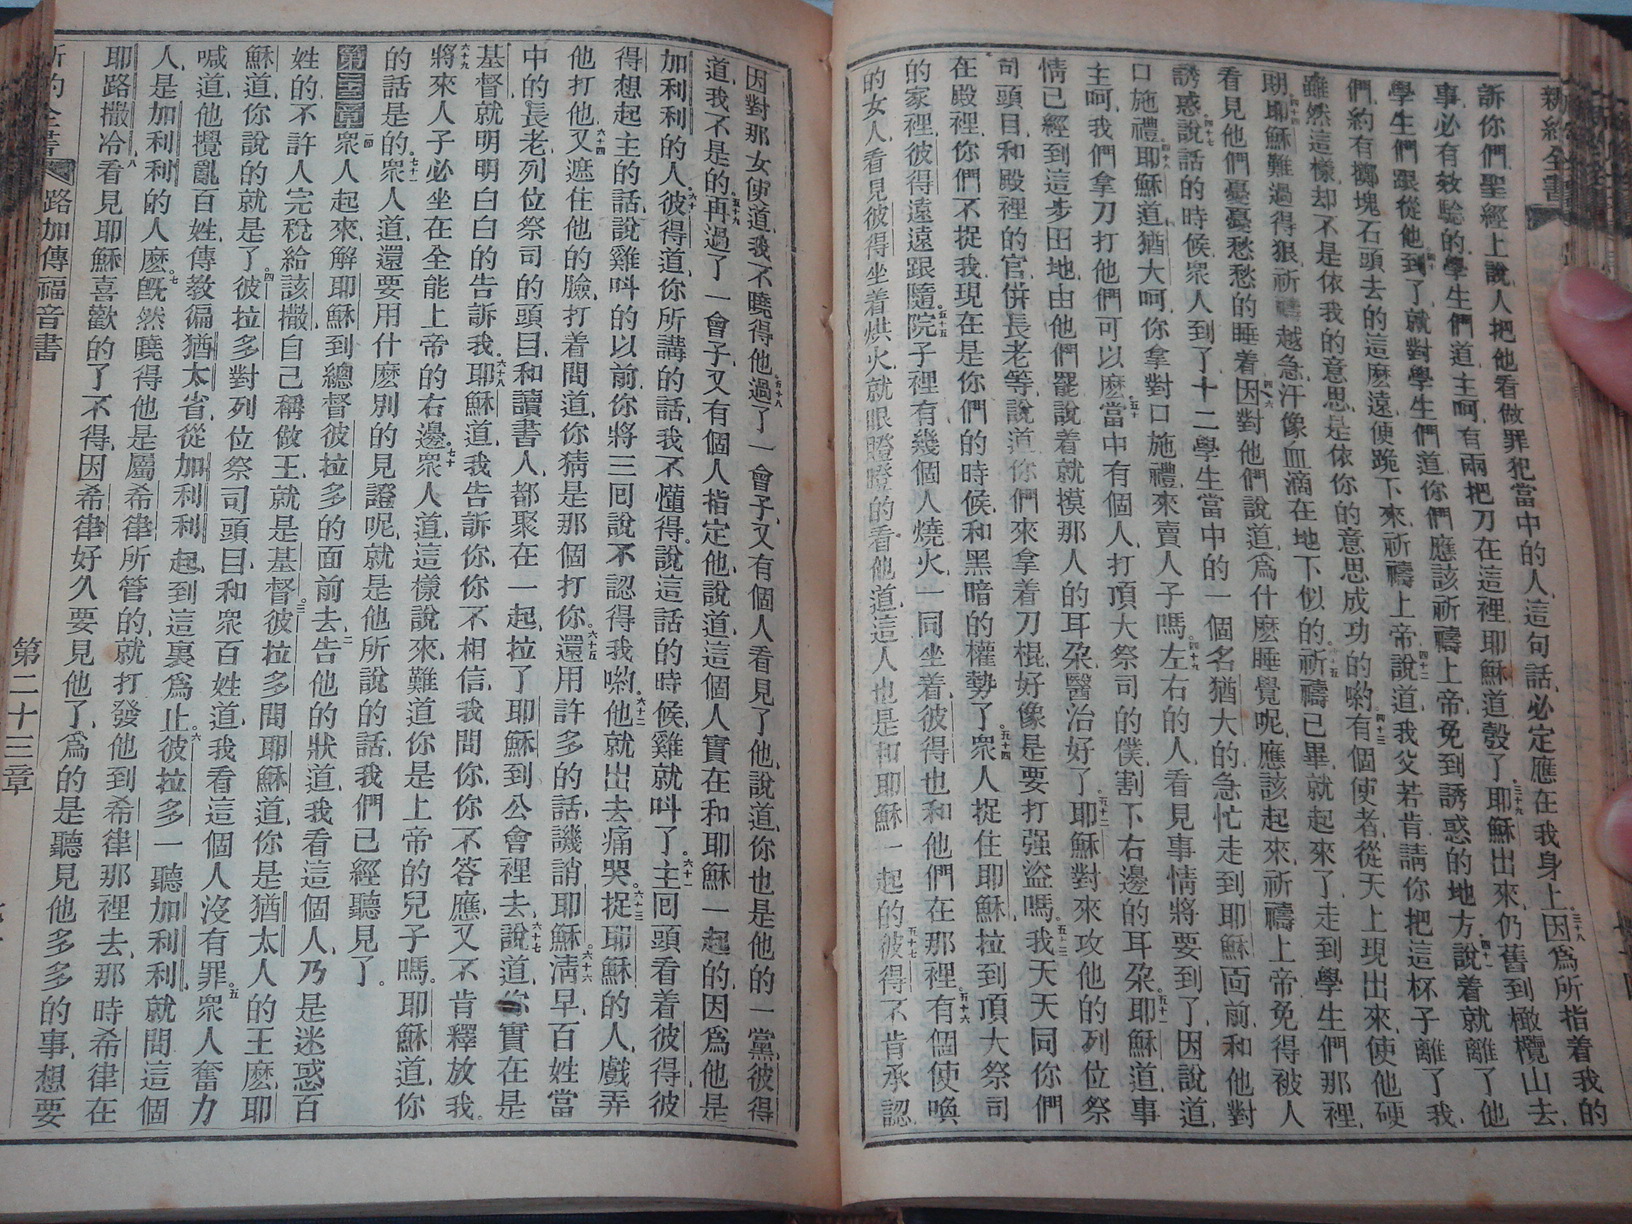 新約全書
訴你們聖經上說人把他看做罪犯當中的人這句話必定應在我身上因爲所指着我的
事必有效驗的學生們道主呵有兩把刀在這裡耶穌道彀了耶穌出來仍舊到橄欖山去
學生們跟從他到了就對學生們道你們應該祈禱上帝免到誘惑的地方說着就離了他
們約有擲塊石頭去的這麽遠便跪下來祈禱上帝說道我父若肯請你把這杯子離了我
雖然這樣却不是依我的意思是依你的意思成功的喲有個使者從天上現出來使他硬
朗耶穌難過得狠祈禱越急汗像血滴在地下似的祈禱已畢就起來了走到學生們那裡
看見他們憂憂愁愁的睡着因對他們說道爲什麽睡覺呢應該起來祈禱上帝免得被人
誘惑說話的時候衆人到了十二學生當中的一個名猶大的急忙走到耶穌面前和他對
口施禮耶穌道猶大呵你拿對口施禮來賣人子嗎左右的人看見事情將要到了因說道
主呵我們拿刀打他們可以麽當中有個人打頂大祭司的僕割下右邊的耳朶耶穌道事
情已經到這步田地由他們罷說着就摸那人的耳朶醫治好了耶穌對來攻他的列位祭
司頭目和殿裡的官倂長老等說道你們來拿着刀棍好像是要打强盜嗎我天天同你們
在殿裡你們不捉我現在是你們的時候和黑暗的權勢了衆人捉住耶穌拉到頂大祭司
的家裡彼得遠遠跟隨院子裡有幾個人燒火一同坐着彼得也和他們在那裡有個使喚
的女人看見彼得坐着烘火就眼瞪瞪的看他道這人也是和耶穌一起的彼得不肯承認
因對那女使道我不曉得他過了一會子又有個人看見了他說道你也是他的一黨彼得
道我不是的再過了一會子又有個人指定他說道這個人實在和耶穌一起的因爲他是
加利利的人彼得道你所講的話我不懂得說這話的時候雞就呌了主回頭看着彼得彼
得想起主的話說雞呌的以前你將三回說不認得我喲他就出去痛哭捉耶穌的人戲弄
他打他又遮住他的臉打着問道你猜是那個打你還用許多的話譏誚耶穌淸早百姓當
中的長老列位祭司的頭目和讀書人都聚在一起拉了耶穌到公會裡去說道你實在是
基督就明明白白的告訴我耶穌道我告訴你你不相信我問你你不答應又不肯釋放我
將來人子必坐在全能上帝的右邊衆人道這樣說來難道你是上帝的兒子嗎耶穌道你
的話是的衆人道還要用什麽別的見證呢就是他所說的話我們已經聽見了
第二十三章衆人起來解耶穌到總督彼拉多的面前去告他的狀道我看這個人乃是迷惑百
姓的不許人完稅給該撒自己稱做王就是基督彼拉多問耶穌道你是猶太人的王麽耶
穌道你說的就是了彼拉多對列位祭司頭目和衆百姓道我看這個人沒有罪衆人奮力
喊道他攪亂百姓傳敎徧猶太省從加利利起到這裏爲止彼拉多一聽加利利就問這個
人是加利利的人麽旣然曉得他是屬希律所管的就打發他到希律那裡去那時希律在
耶路撒冷看見耶穌喜歡的了不得因希律好久要見他了爲的是聽見他多多的事想要
新約全書 路加傳福音書 第二十三章